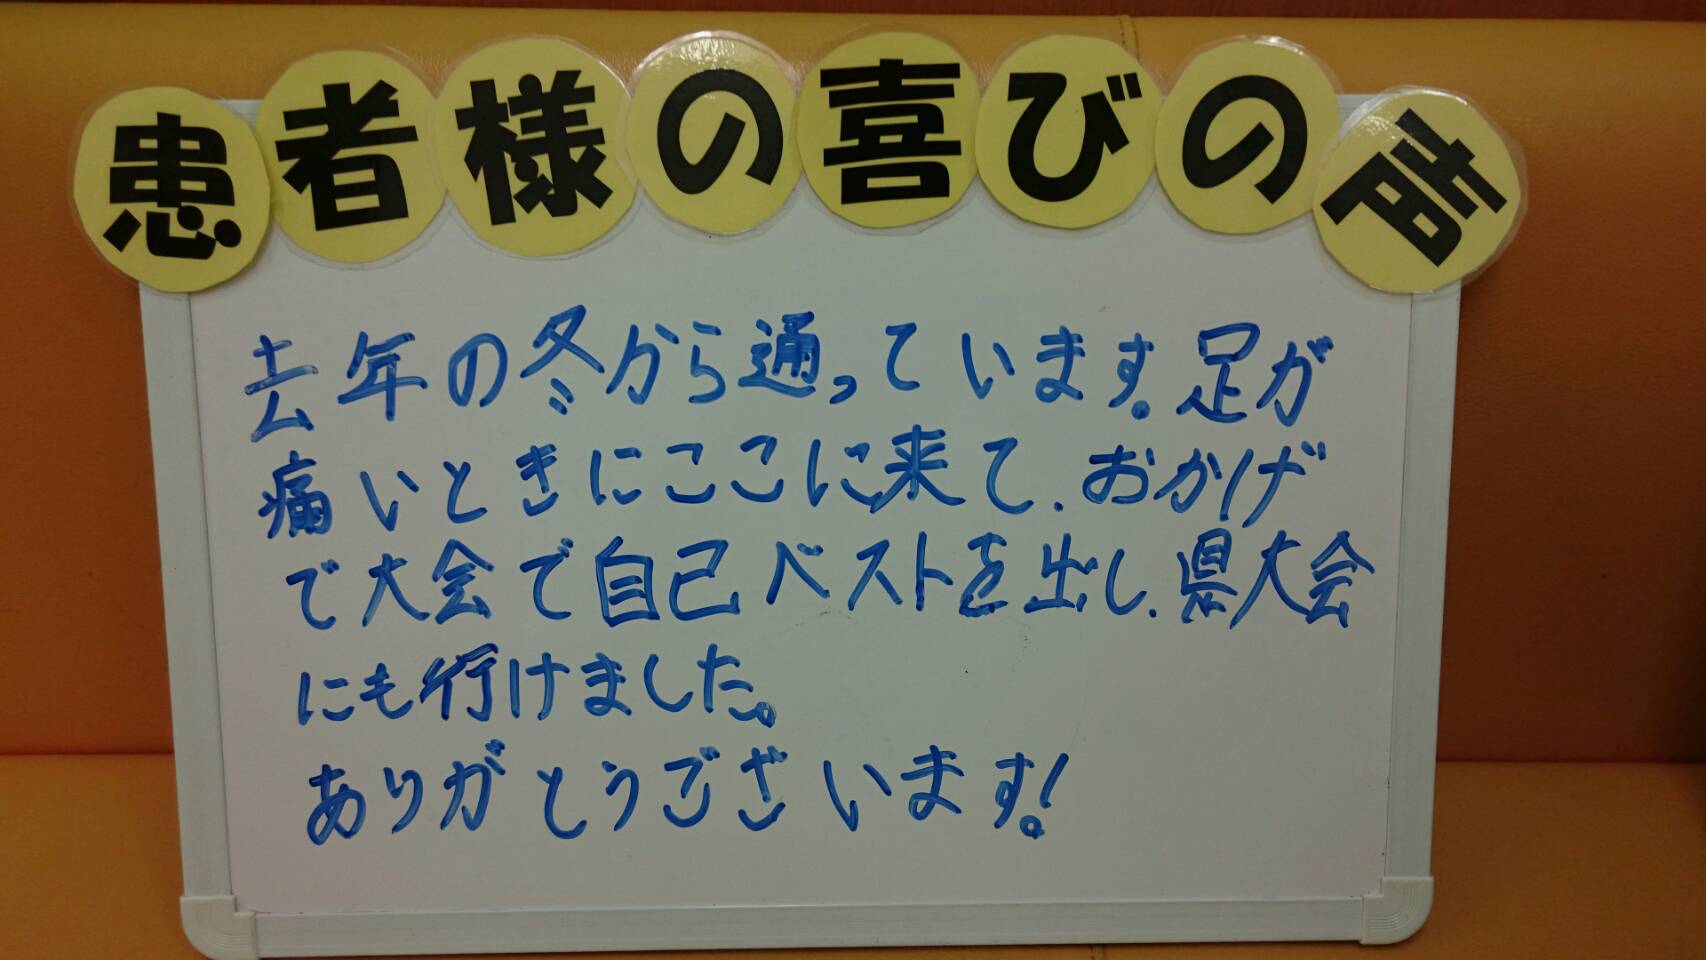 患者様の喜びの声
去年の冬から通っています。足が
痛いときにここに来て、おかげ
で大会で自己ベストを出し、県大会
にも行けました。
ありがとうございます!